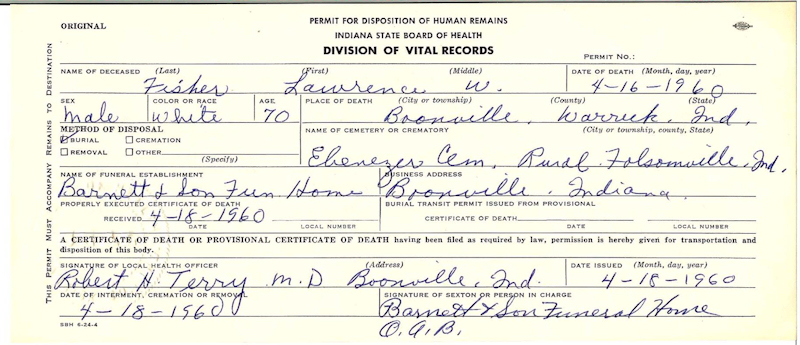 ORIGINAL
PERMIT FOR DISPOSITION OF HUMAN REMAINS
INDIANA STATE BOARD OF HEALTH
DIVISION OF VITAL RECORDS
PERMIT NO.:
THIS PERMIT MUST ACCOMPANY REMAINS TO DESTINATION
NAME OF DECEASED (Last) (First) (Middle) DATE OF DEATH (Month, day, year)
Fisher Lawrence W. 4-16-1960
SEX COLOR OR RACE AGE PLACE OF DEATH (City or township) (County) (State)
Male White 70 Boonville, Warrick, Ind.
METHOD OF DISPOSAL NAME OF CEMETERY OR CREMATORY (City or township, county, State)
BURIAL CREMATION
REMOVAL OTHER
(Specify)
Ebenezer Cem. Rural Folsomville, Ind.
NAME OF FUNERAL ESTABLISHMENT BUSINESS ADDRESS
Barnett & Son Fun. Home Boonville, Indiana
PROPERLY EXECUTED CERTIFICATE OF DEATH BURIAL TRANSIT PERMIT ISSUED FROM PROVISIONAL
RECEIVED 4-18-1960 CERTIFICATE OF DEATH
DATE LOCAL NUMBER DATE LOCAL NUMBER
A CERTIFICATE OF DEATH OR PROVISIONAL CERTIFICATE OF DEATH having been filed as required by law, permission is hereby given for transportation and
disposition of this body.
SIGNATURE OF LOCAL HEALTH OFFICER (Address) DATE ISSUED (Month, day, year)
Robert H. Terry M.D Boonville, Ind. 4-18-1960
DATE OF INTERMENT, CREMATION OR REMOVAL SIGNATURE OF SEXTON OR PERSON IN CHARGE
4-18-1960 Barnett & Son Funeral Home
O.A.B.
SBH 6-24-4